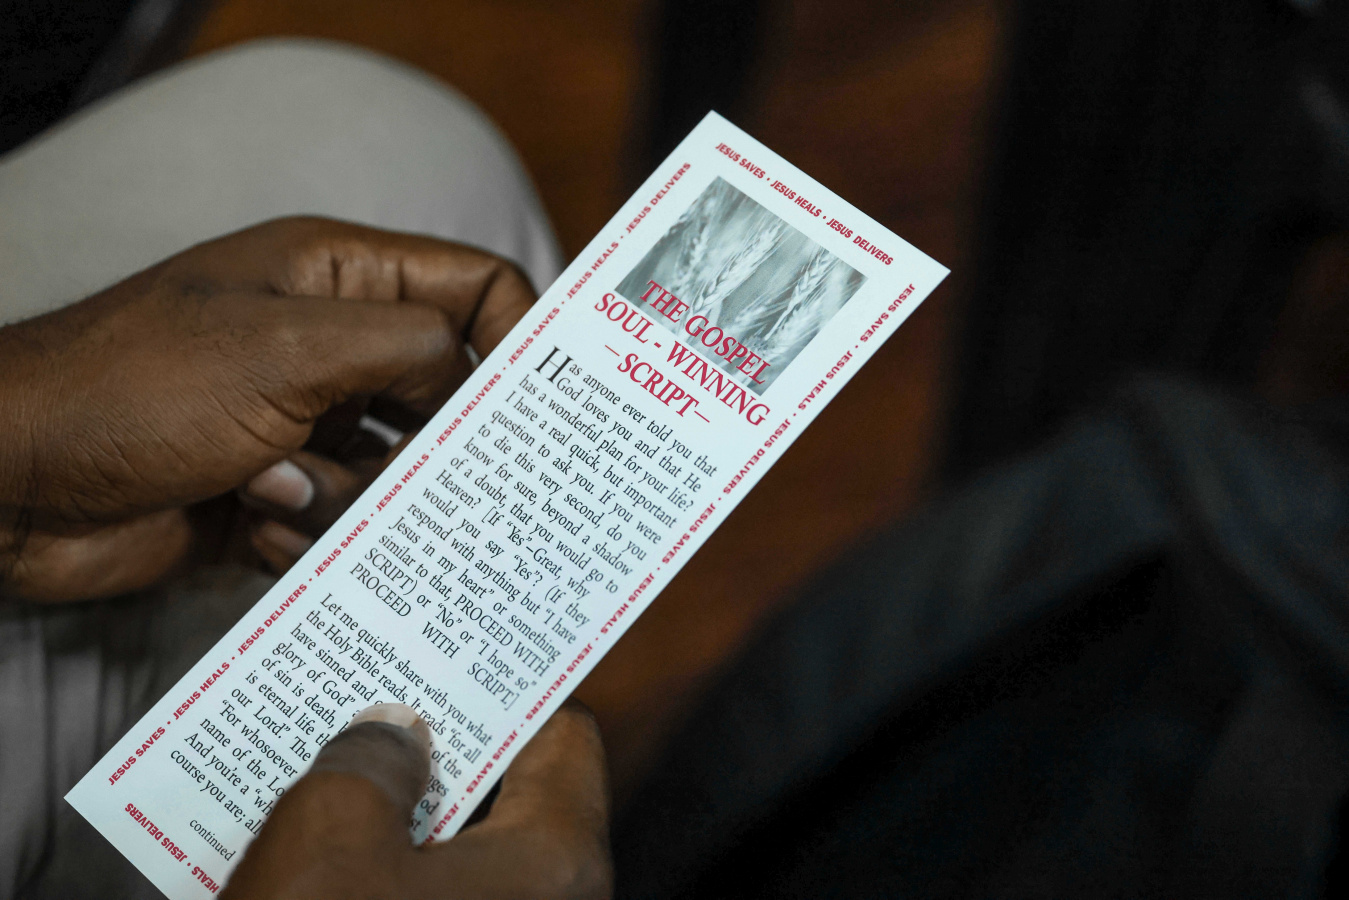 JESUS SAVES • JESUS HEALS • JESUS DELIVERS
THE GOSPEL
SOUL - WINNING
—SCRIPT—
Has anyone ever told you that
God loves you and that He
has a wonderful plan for your life?
I have a real quick, but important
question to ask you. If you were
to die this very second, do you
know for sure, beyond a shadow
of a doubt, that you would go to
Heaven? [If “Yes”–Great, why
would you say “Yes”? (If they
respond with anything but “I have
Jesus in my heart” or something
similar to that, PROCEED WITH
SCRIPT) or “No” or “I hope so”
PROCEED WITH SCRIPT.]
Let me quickly share with you what
the Holy Bible reads. It reads “for all
have sinned and
glory of God” of the
of sin is death,
is eternal life
our Lord”. The
“For whosoever
name of the
And you're a
course you are; all
continued
JESUS SAVES • JESUS HEALS • JESUS DELIVERS • JESUS SAVES • JESUS HEALS • JESUS DELIVERS • JESUS SAVES • JESUS HEALS • JESUS DELIVERS
JESUS SAVES • JESUS HEALS • JESUS DELIVERS • JESUS SAVES • JESUS HEALS • JESUS DELIVERS • JESUS SAVES
JESUS DELIVERS • JESUS